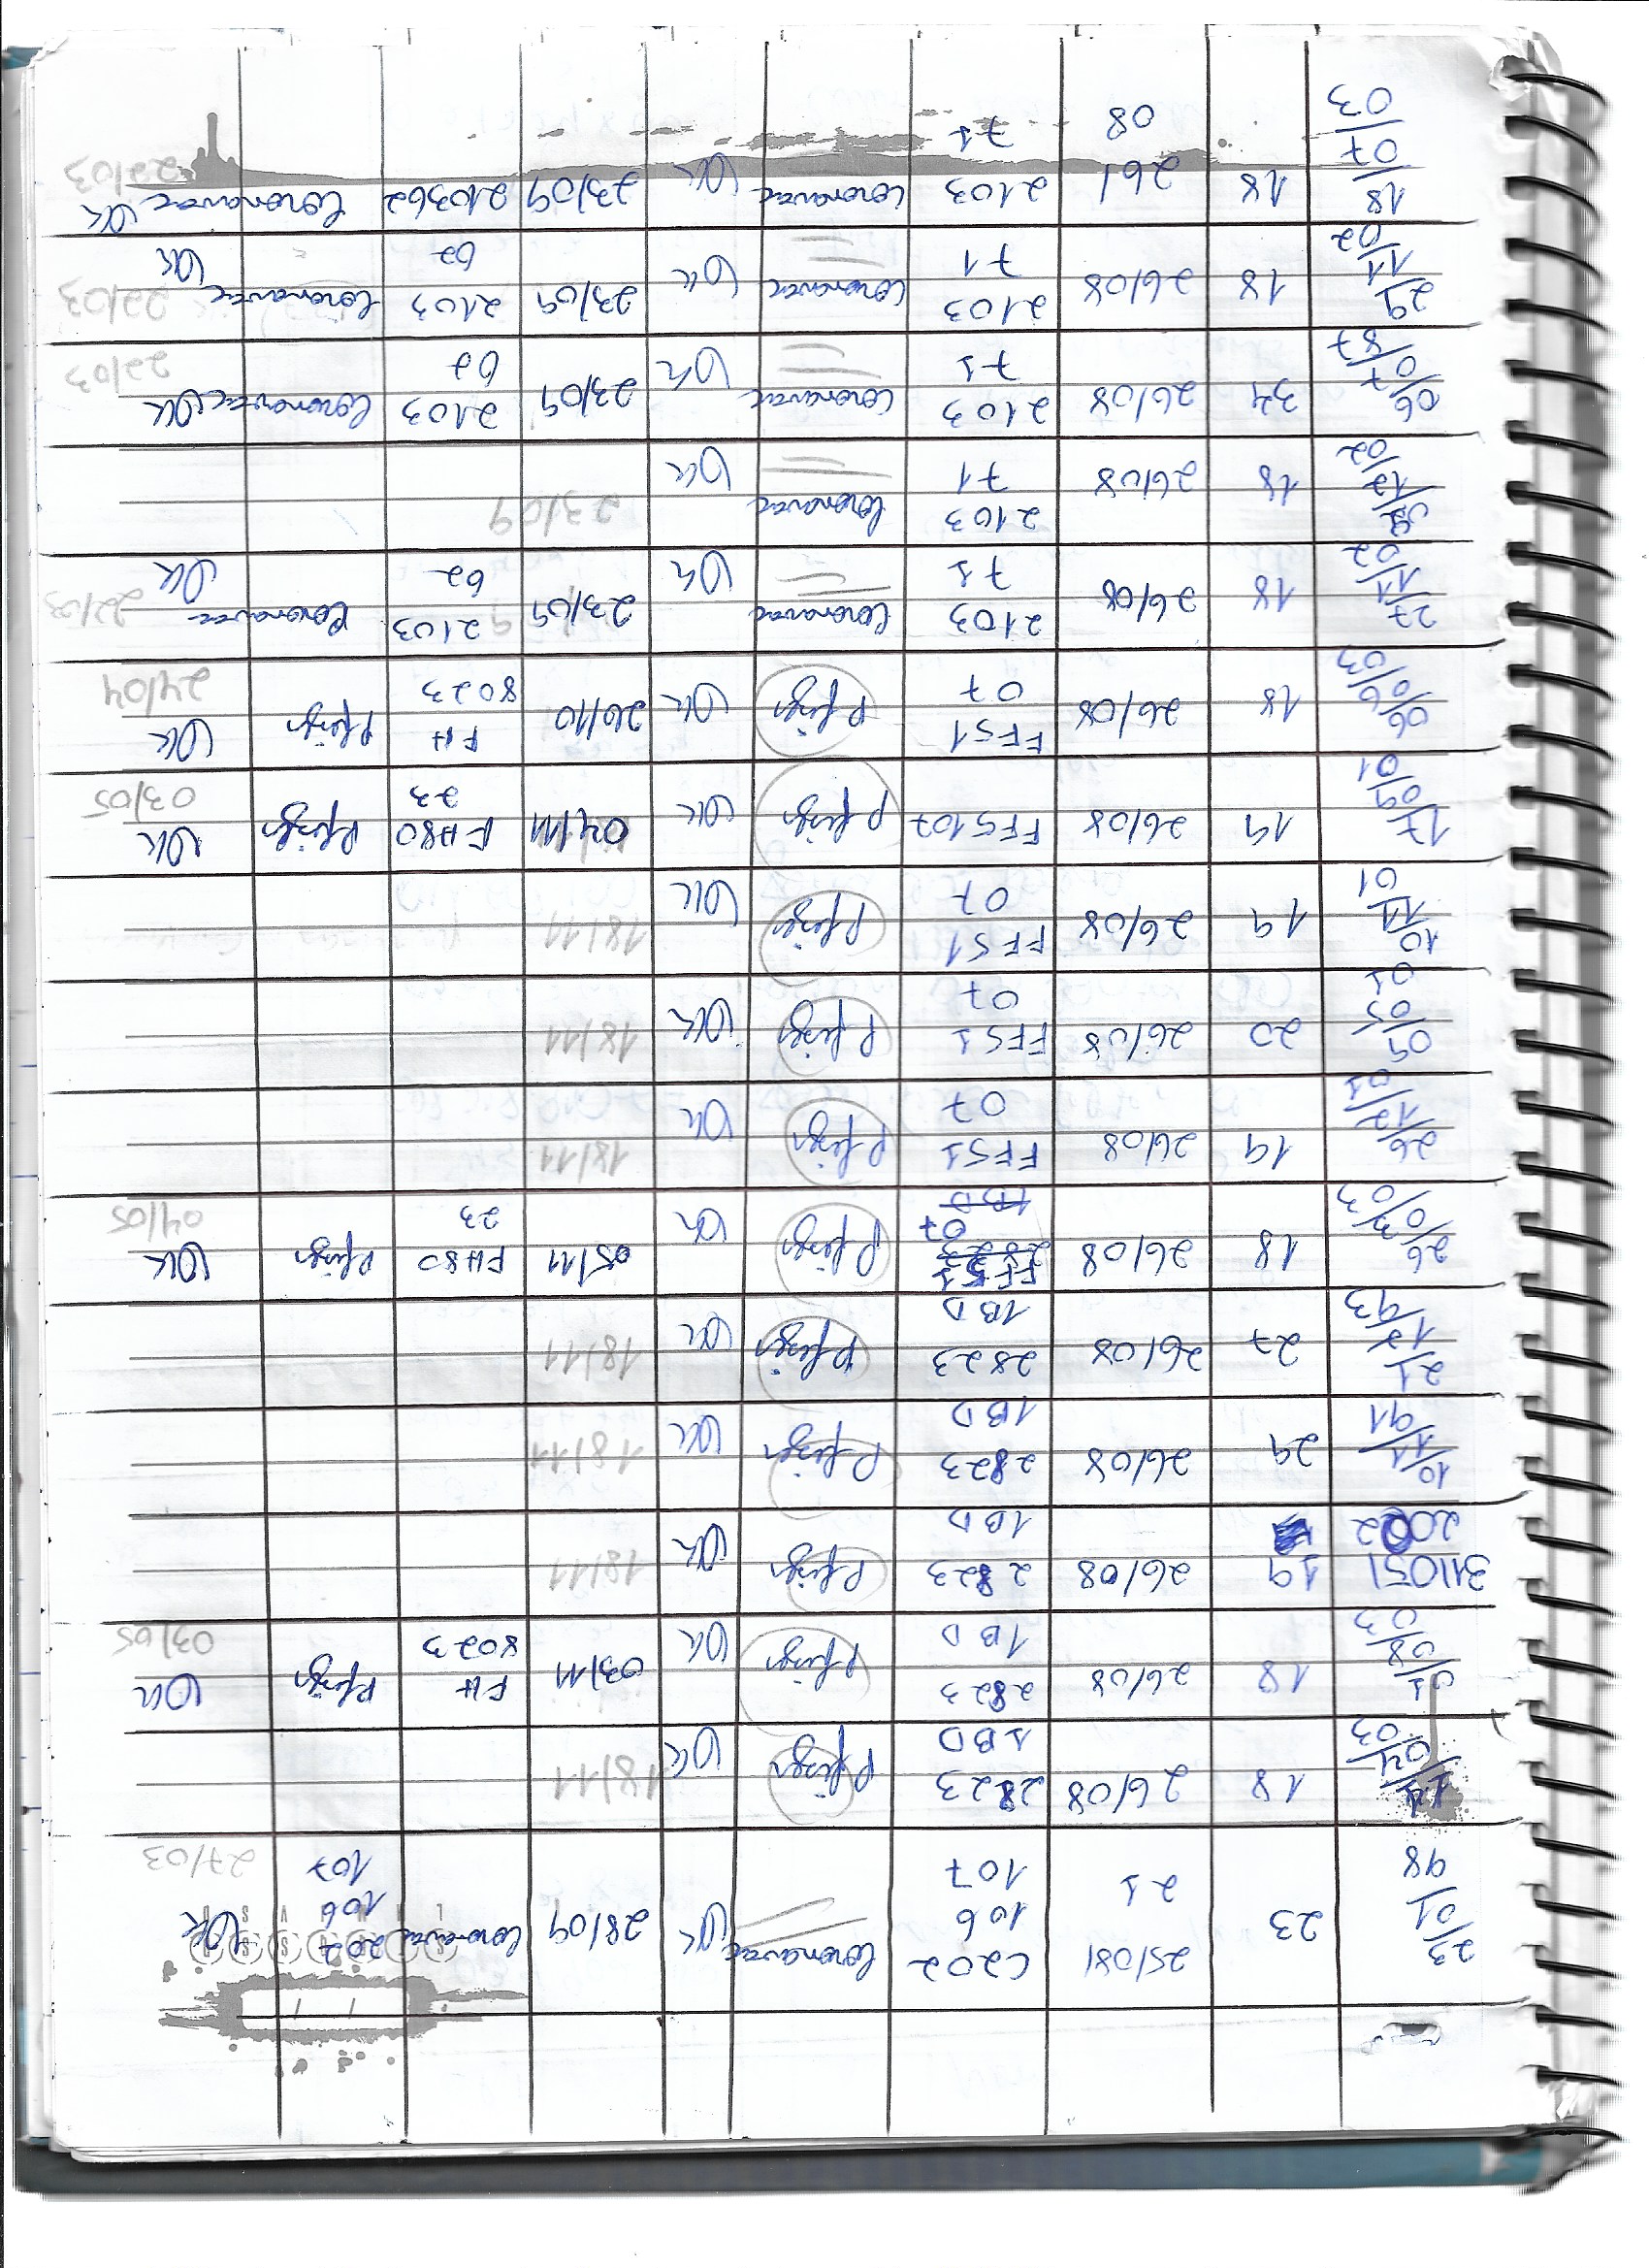 23/ 23 25/08/ C202 Coronavac OK 28/09 Coronavac 202 OK
01/ 21 106 106
98 107 107 27/03
14/ 18 26/08 2823 Pfizer OK 18/11
04/ 1BD
03
01/ 18 26/08 2823 Pfizer OK 03/11 FH Pfizer OK
08/ 1BD 8023 03/05
03
31/05/ 19 26/08 2823 Pfizer OK 18/11
2002 1BD
10/ 29 26/08 2823 Pfizer OK 18/11
11/ 1BD
91
21/ 27 26/08 2823 Pfizer OK 18/11
12/ 1BD
93
26/ 18 26/08 FF51 Pfizer OK 05/11 FH80 Pfizer OK
03/ 07 23 04/05
03
26/ 19 26/08 FF51 Pfizer OK 18/11
12/ 07
01
09/ 20 26/08 FF51 Pfizer OK 18/11
05/ 07
01
10/ 19 26/08 FF51 Pfizer OK 18/11
11/ 07
01
17/ 19 26/08 FF5107 Pfizer OK 04/11 FH80 Pfizer OK
09/ 23 03/05
01
06/ 18 26/08 FF51 Pfizer OK 26/10 FH Pfizer OK
06/ 07 8023 24/04
03
27/ 18 26/08 2103 Coronavac OK 23/09 2103 Coronavac 22/03
11/ 71 62 OK
02
18 26/08 2103 Coronavac OK 23/09
12/ 71
02
06/ 34 26/08 2103 Coronavac OK 23/09 2103 Coronavac OK
07/ 71 62 22/03
87
29/ 18 26/08 2103 Coronavac OK 23/09 2103 Coronavac 22/03
11/ 71 62 OK
02
18/ 18 26/ 2103 Coronavac OK 23/09 210362 Coronavac OK
07/ 08 71 22/03
03